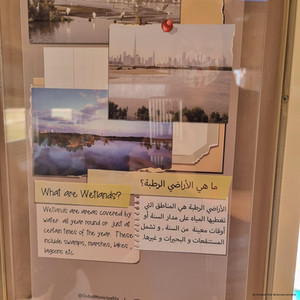 What are Wetlands?
Wetlands are areas covered by
water all year round or just at
certain times of the year. These
include swamps, marshes, lakes,
lagoons etc.
ما هي الأراضي الرطبة؟
الأراضي الرطبة هي المناطق التي
تغطيها المياه على مدار السنة أو
أوقات معينة من السنة، و تشمل
المستنقعات و البحيرات و غيرها.